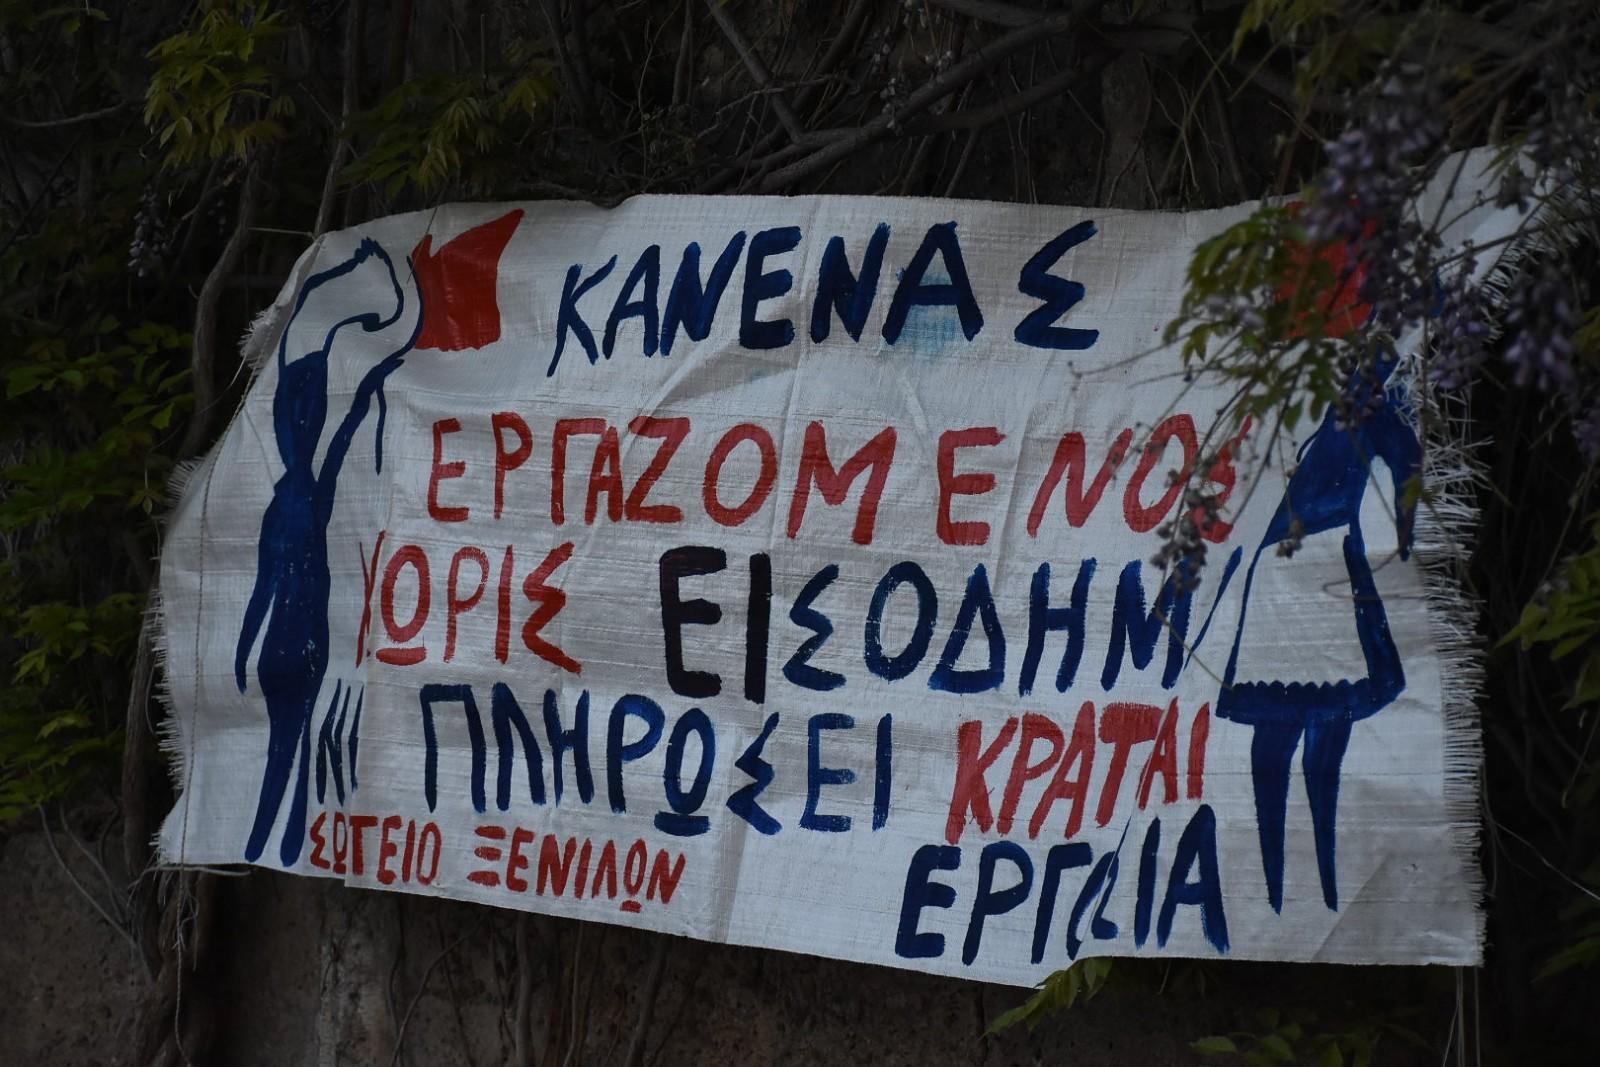 ΚΑΝΕΝΑΣ
ΕΡΓΑΖΟΜΕΝΟΣ
ΧΩΡΙΣ ΕΙΣΟΔΗΜ
ΝΙ ΠΛΗΡΩΣΕΙ ΚΡΑΤΑΙ
ΕΡΓΟΔΙΑ
ΣΩΓΕΙΟ ΞΕΝΙΛΩΝ